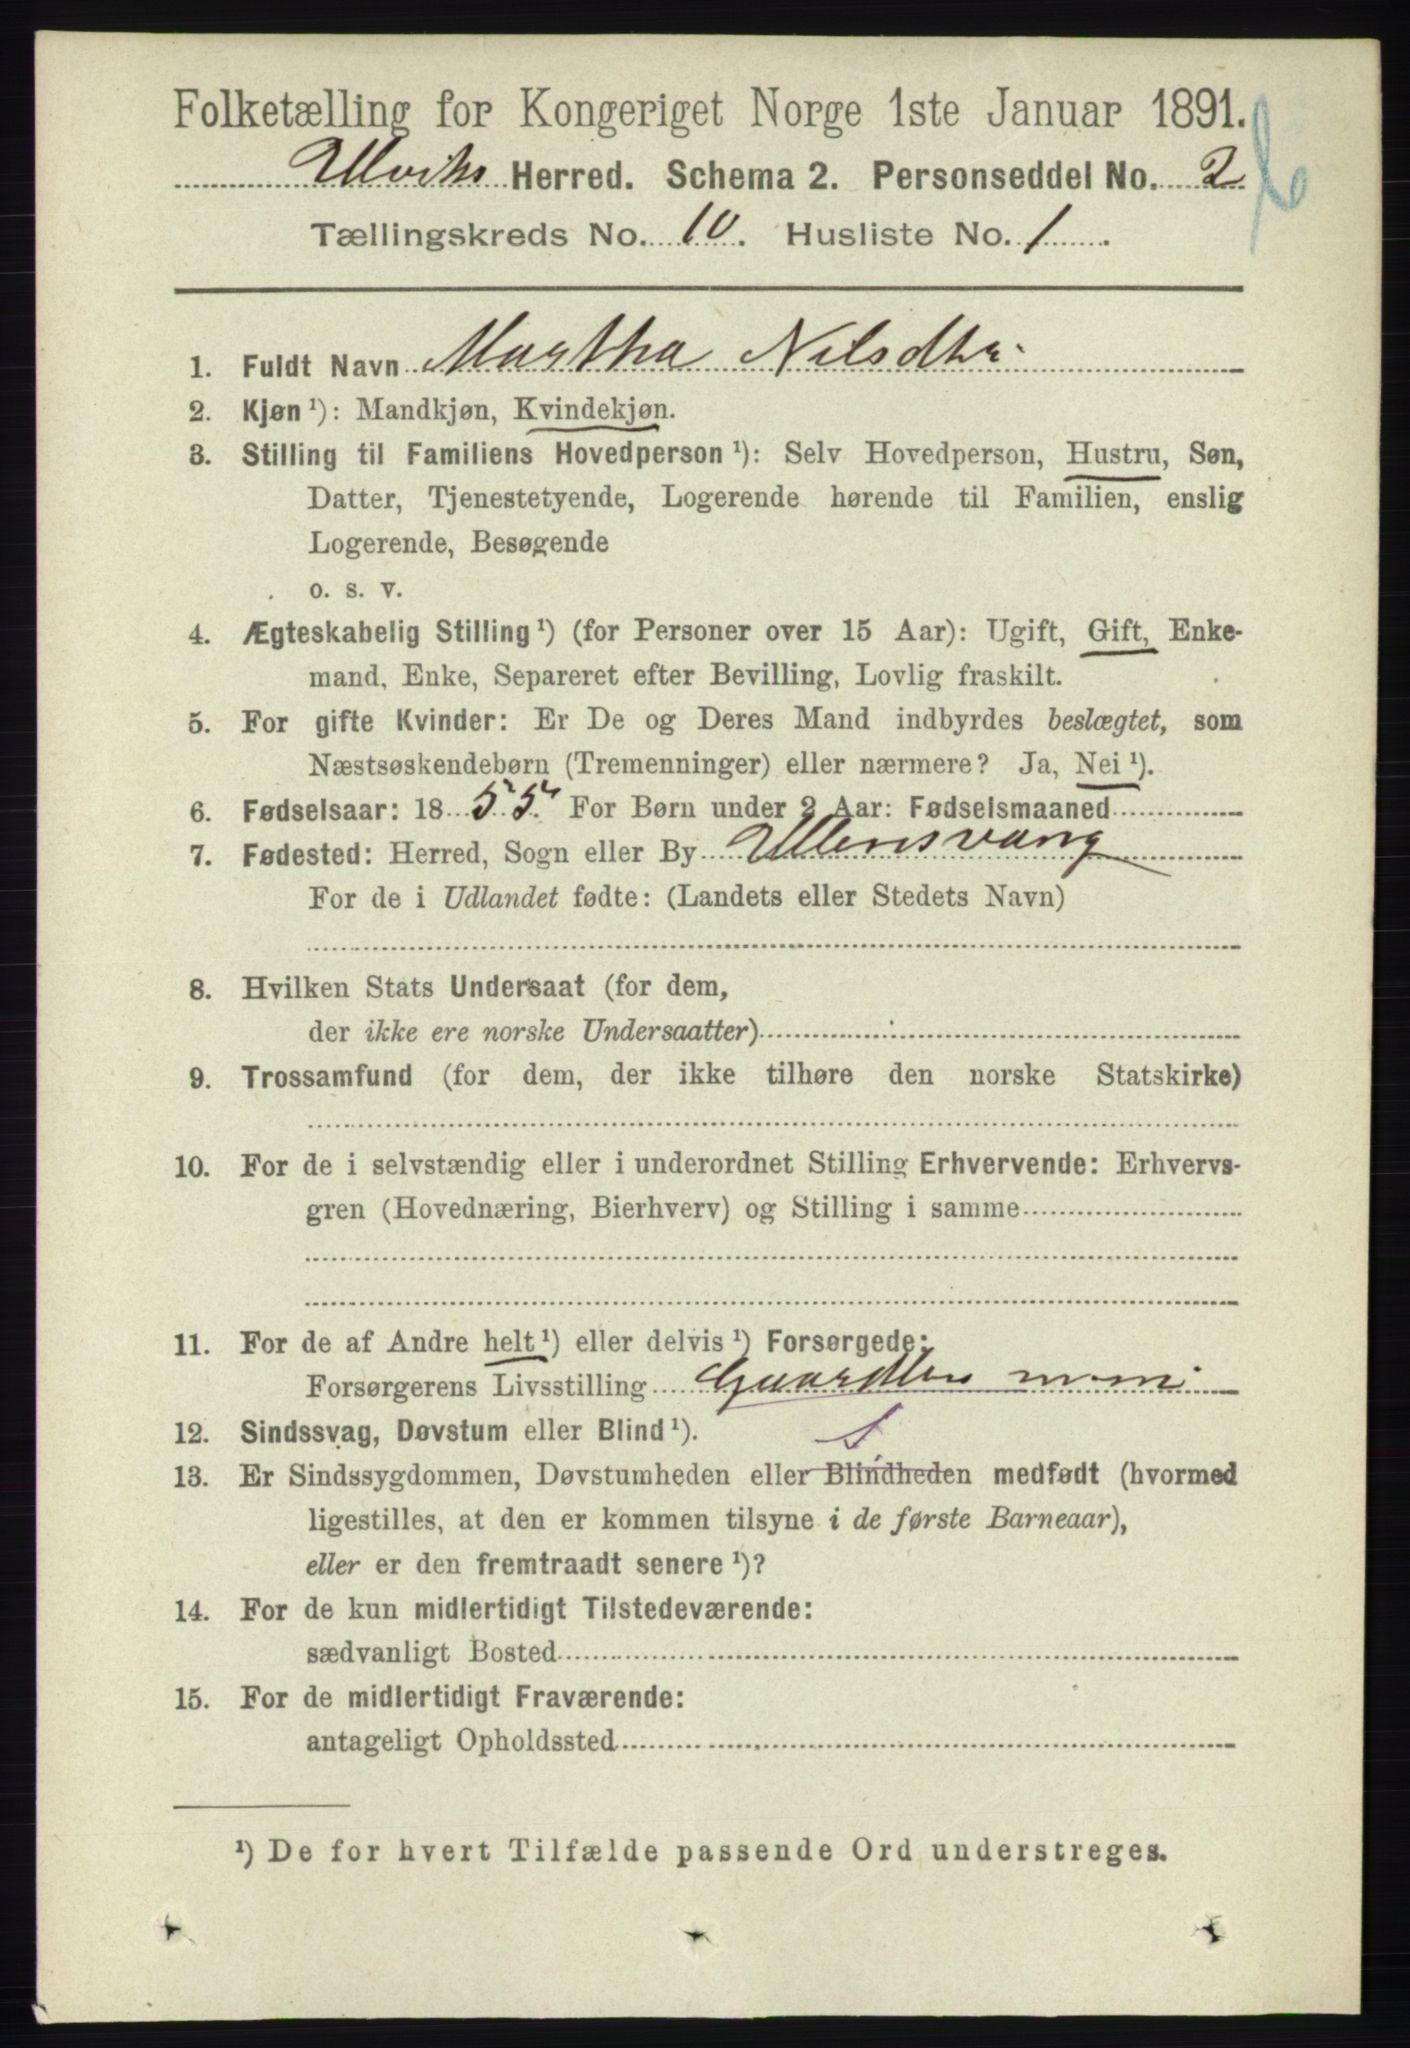 Folketælling for Kongeriget Norge 1ste Januar 1891.
Ulviks Herred. Schema 2. Personseddel No. 2
Tællingskreds No. 10. Husliste No. 1.
1. Fuldt Navn Martha Nilsdtr.
2. Kjøn ¹): Mandkjøn, Kvindekjøn.
3. Stilling til Familiens Hovedperson ¹): Selv Hovedperson, Hustru, Søn,
Datter, Tjenestetyende, Logerende hørende til Familien, enslig
Logerende, Besøgende
o. s. v.
4. Ægteskabelig Stilling ¹) (for Personer over 15 Aar): Ugift, Gift, Enke-
mand, Enke, Separeret efter Bevilling, Lovlig fraskilt.
5. For gifte Kvinder: Er De og Deres Mand indbyrdes beslægtet, som
Næstsøskendebørn (Tremenninger) eller nærmere? Ja, Nei ¹).
6. Fødselsaar: 1855. For Børn under 2 Aar: Fødselsmaaned
7. Fødested: Herred, Sogn eller By Ullensvang
For de i Udlandet fødte: (Landets eller Stedets Navn)
8. Hvilken Stats Undersaat (for dem,
der ikke ere norske Undersaatter)
9. Trossamfund (for dem, der ikke tilhøre den norske Statskirke)
10. For de i selvstændig eller i underordnet Stilling Erhvervende: Erhvervs-
gren (Hovednæring, Bierhverv) og Stilling i samme
11. For de af Andre helt ¹) eller delvis ¹) Forsørgede:
Forsørgerens Livsstilling
12. Sindssvag, Døvstum eller Blind ¹).
13. Er Sindssygdommen, Døvstumheden eller Blindheden medfødt (hvormed
ligestilles, at den er kommen tilsyne i de første Barneaar),
eller er den fremtraadt senere ¹)?
14. For de kun midlertidigt Tilstedeværende:
sædvanligt Bosted
15. For de midlertidigt Fraværende:
antageligt Opholdssted
¹) De for hvert Tilfælde passende Ord understreges.